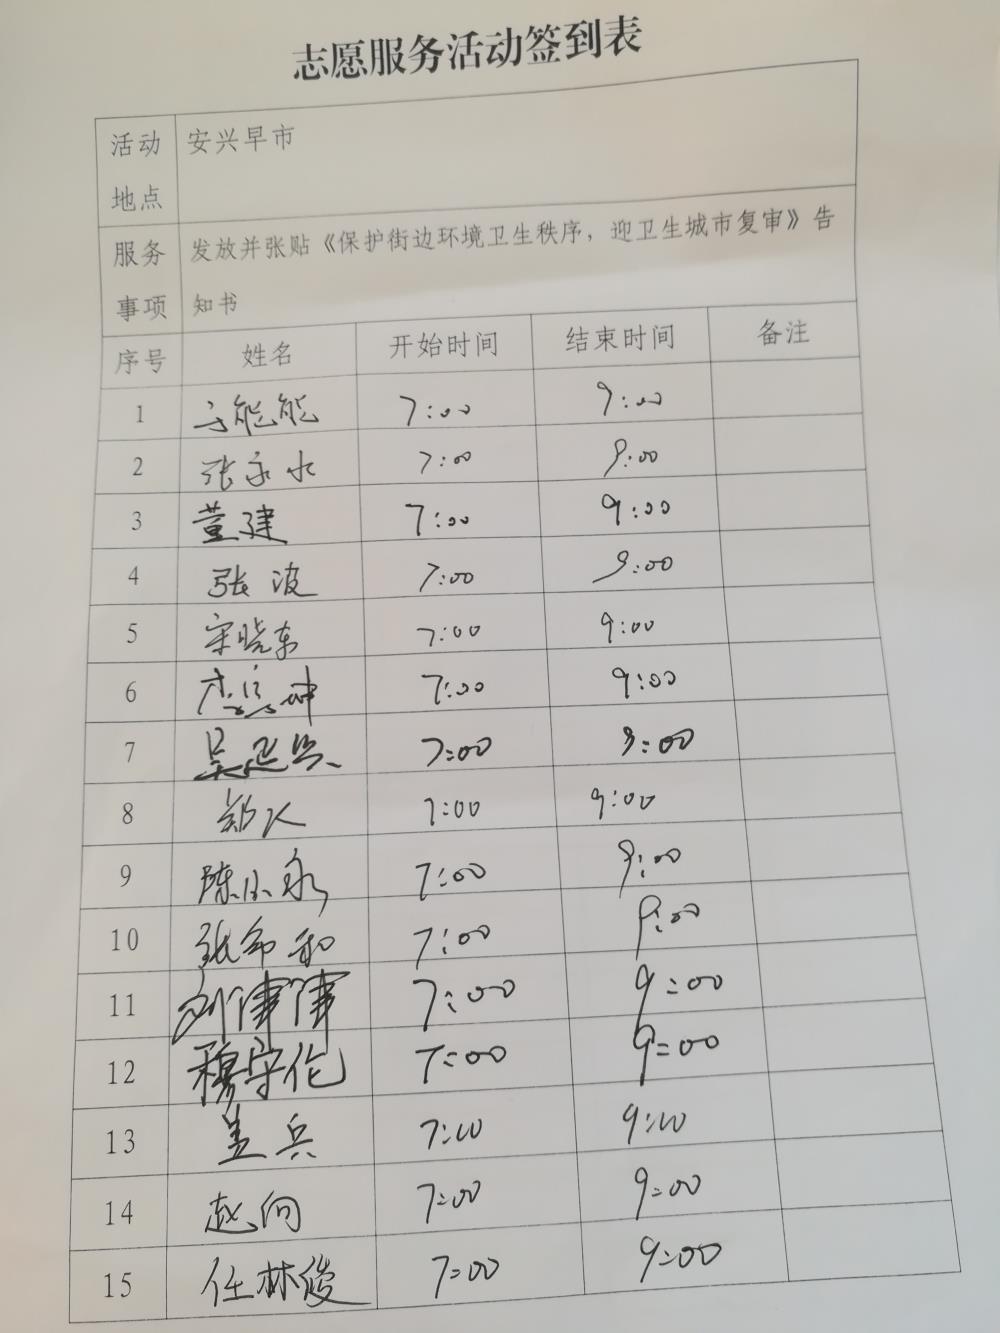 志愿服务活动签到表
活动地点 安兴早市
服务事项 发放并张贴《保护街边环境卫生秩序，迎卫生城市复审》告知书
序号 姓名 开始时间 结束时间 备注
1 能能 7:00 9:00
2 张永水 7:00 9:00
3 董建 7:00 9:00
4 张波 7:00 9:00
5 宋晓东 7:00 9:00
6 7:00 9:00
7 吴延兵 7:00 9:00
8 郑 7:00 9:00
9 陈小永 7:00 9:00
10 张 和 7:00 9:00
11 刘津津 7:00 9:00
12 穆守伦 7:00 9:00
13 姜兵 7:00 9:00
14 赵向 7:00 9:00
15 任林俊 7:00 9:00